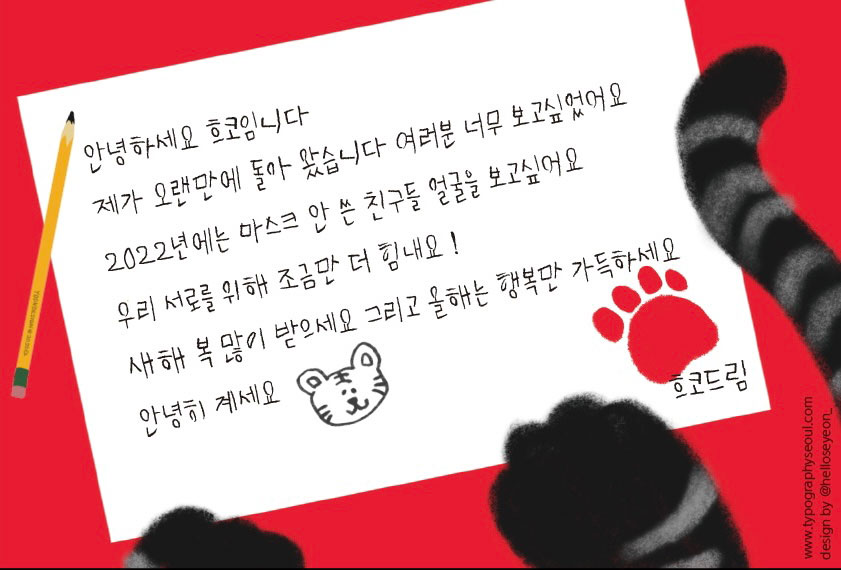 안녕하세요 흐코입니다
제가 오랜만에 돌아 왔습니다 여러분 너무 보고싶었어요
2022년에는 마스크 안 쓴 친구들 얼굴을 보고싶어요
우리 서로를 위해 조금만 더 힘내요!
새해 복 많이 받으세요 그리고 올해는 행복만 가득하세요
안녕히 계세요
흐코드림
www.typographyseoul.com
design by @helloseyeon_